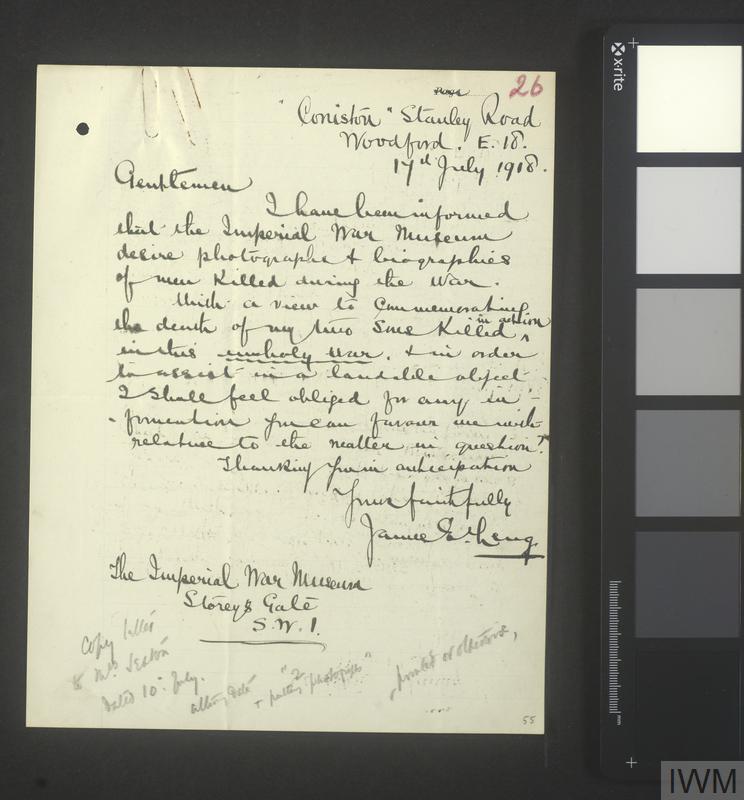 26
"Coniston" Stanley Road
Woodford. E. 18.
17th July 1918.
Gentlemen
I have been informed
that the Imperial War Museum
desire photographs & biographies
of men Killed during the War.
With a view to Commemorating
the death of my two Sons Killed in action
in this unholy War, & in order
to assist in a laudable object
I shall feel obliged for any in-
-formation you can favour me with
relative to the matter in question.
Thanking you in anticipation
Yours faithfully
James
The Imperial War Museum
Storey's Gate
S.W.1.
Copy letter
to Mrs Seaton
dated 10th July.
altering date
+ putting "2 photographs"
printed or otherwise,
55
x-rite
mm
IWM